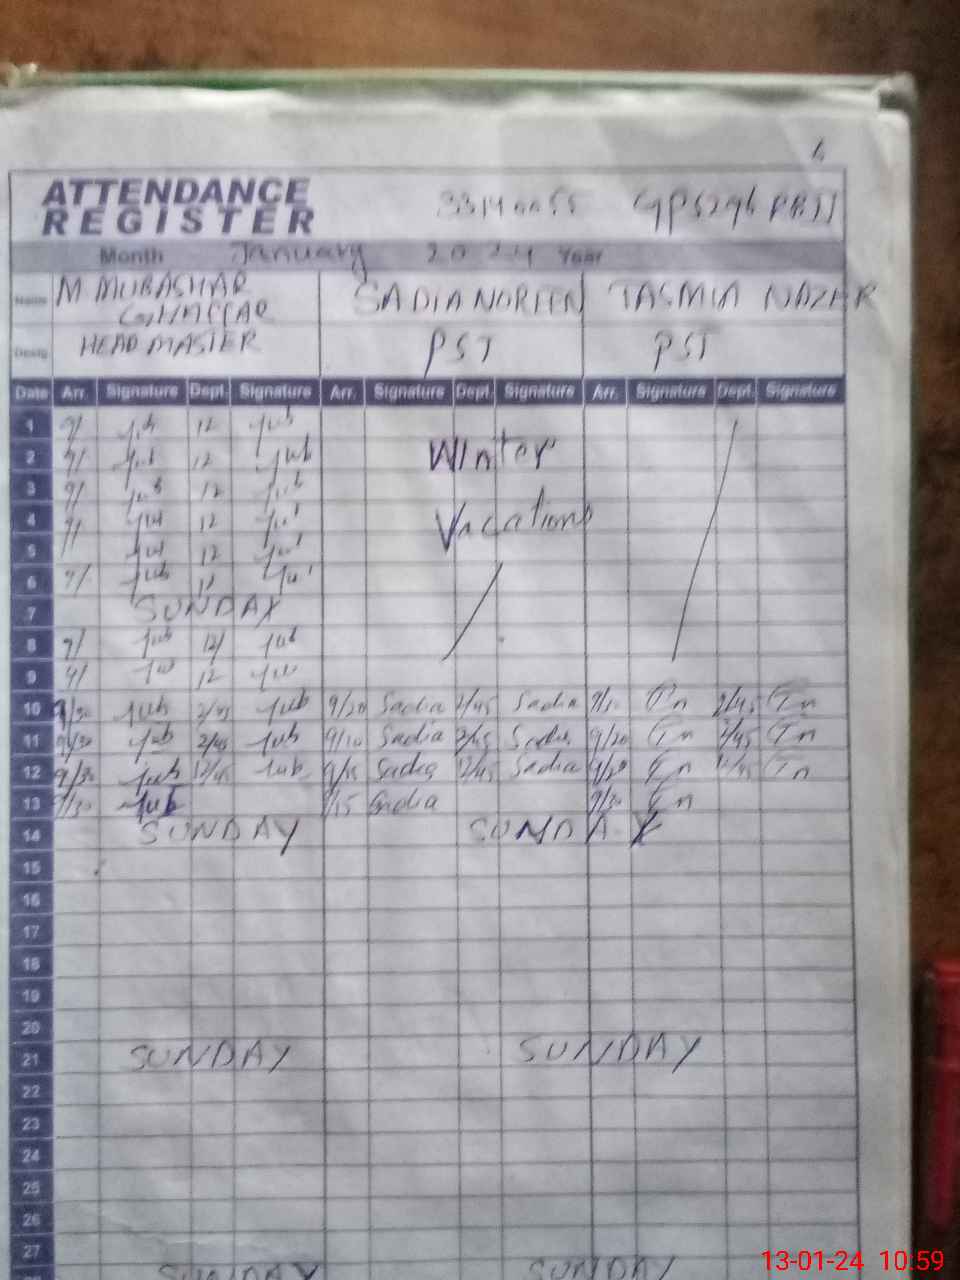 6
ATTENDANCE
REGISTER 33140055 GPS296 PBII
Month January 2024 Year
Name M MUBASHAR SADIA NOREEN TASMIA NAZER
GHAFFAR
Desig HEAD MASTER PST PST
Date Arr. Signature Dept. Signature Arr. Signature Dept. Signature Arr. Signature Dept. Signature
1 9/ 12
2 9/ 12 Winter
3 9/ 12
4 9/ 12 Vacations
5 12
6 9/ 12
7 SUNDAY
8 9/ 12/
9 9/ 12
10 9/30 2/45 9/20 Sadia 2/45 Sadia Tn 2/45 Tn
11 9/30 2/45 9/10 Sadia 2/45 Sadia 9/20 Tn 2/45 Tn
12 9/30 12/45 9/15 Sadia 12/45 Sadia 9/20 Tn 12/45 Tn
13 9/30 9/15 Sadia 9/30 Tn
14 SUNDAY SUNDAY
15
16
17
18
19
20
21 SUNDAY SUNDAY
22
23
24
25
26
27
28 SUNDAY SUNDAY
13-01-24 10:59